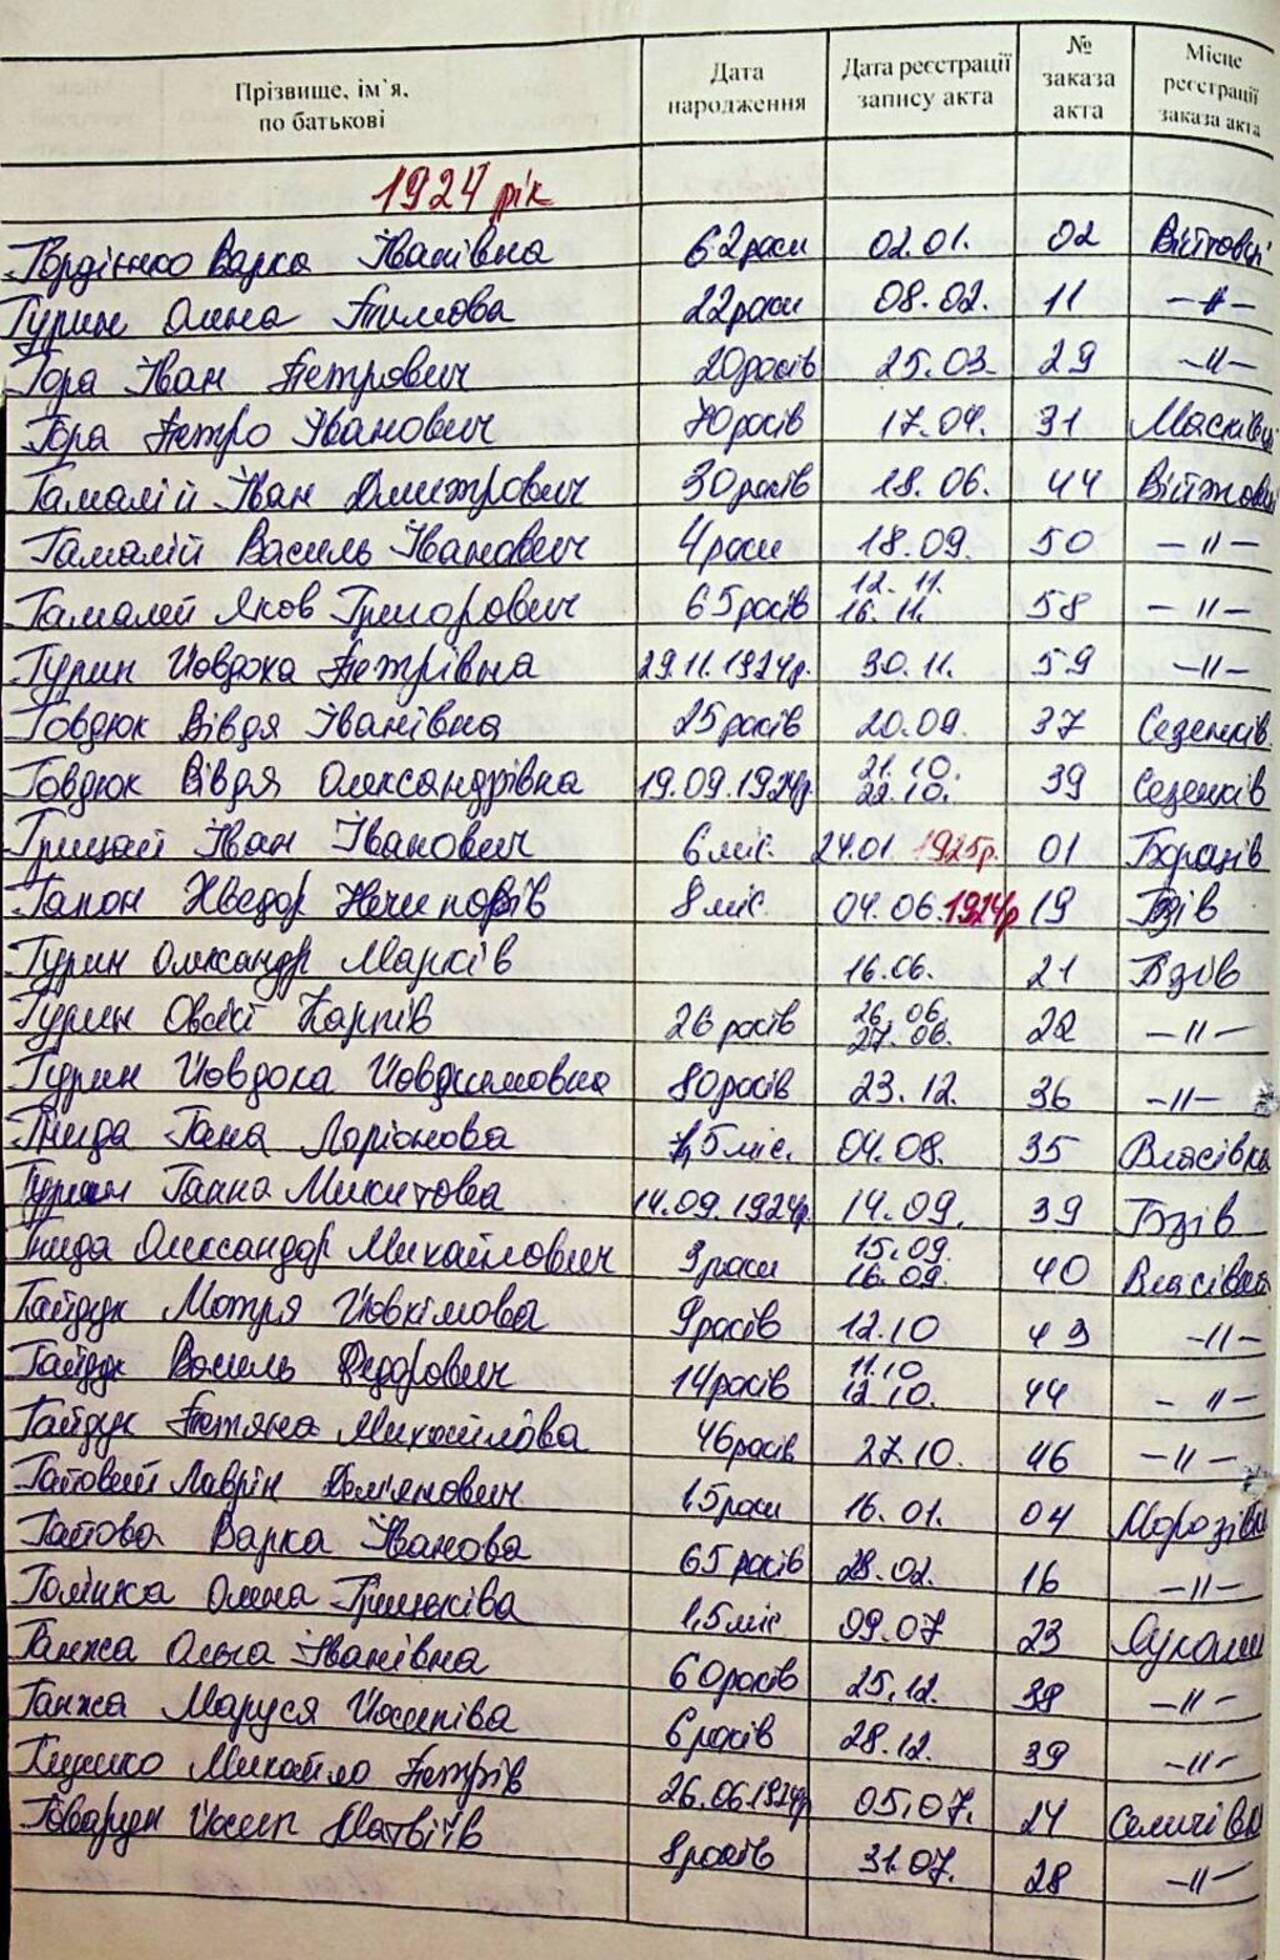 Прізвище, ім`я, по батькові | Дата народження | Дата реєстрації запису акта | № заказа акта | Місце реєстрації заказа акта
1924 рік
Гордієнко Варка Іванівна 62 роки 02.01. 02 Війтовці
Гурин Олена Климова 22 роки 08.02. 11 –"–
Гора Іван Петрович 20 років 25.03. 29 –"–
Гора Петро Іванович 70 років 17.04. 31 Масківці
Гамалій Іван Дмитрович 30 років 18.06. 44 Війтовці
Гамалій Василь Іванович 4 роки 18.09. 50 –"–
Гамалей Яков Григорович 65 років 12.11. 16.11. 58 –"–
Гурин Йовдоха Петрівна 29.11.1924р. 30.11. 59 –"–
Говдюк Вівдя Іванівна 25 років 20.09. 37 Сезенків
Говдюк Вівдя Олександрівна 19.09.1924р. 21.10. 22.10. 39 Сезенків
Грицай Іван Іванович 6 міс. 24.01 1925р. 01
Гапон Хведор Нечипорів 8 міс. 04.06.1924р 19 Бзів
Гурин Олександр Марків 16.06. 21 Бзів
Гурин Овсій Карпів 26 років 26.06. 27.06. 22 –"–
Гурин Йовдоха 80 років 23.12. 36 –"–
Гнида Гана Ларіонова 1,5 міс. 04.08. 35 Власівка
Гурин Ганна Микитовна 14.09.1924р. 14.09. 39 Бзів
Гнида Олександор Михайлович 3 роки 15.09. 16.09. 40 Власівка
Гайдук Мотря Йовкімова 9 років 12.10 43 –"–
Гайдук Василь Федорович 14 років 11.10 12.10. 44 –"–
Гайдук Тетяна Михайлова 46 років 27.10. 46 –"–
Гайовий Лаврін Дем'янович 1,5 роки 16.01. 04 Морозівка
Гайова Варка Іванова 65 років 28.02. 16 –"–
Олена Грицьківа 1,5 міс 09.07 23
Ганжа Ольга Іванівна 60 років 25.12. 38 –"–
Ганжа Маруся Йосипіва 6 років 28.12. 39 –"–
Михайло Петрів 26.06.1924р 05.07. 24 Селичівка
Йосип Матвіїв 8 років 31.07. 28 –"–